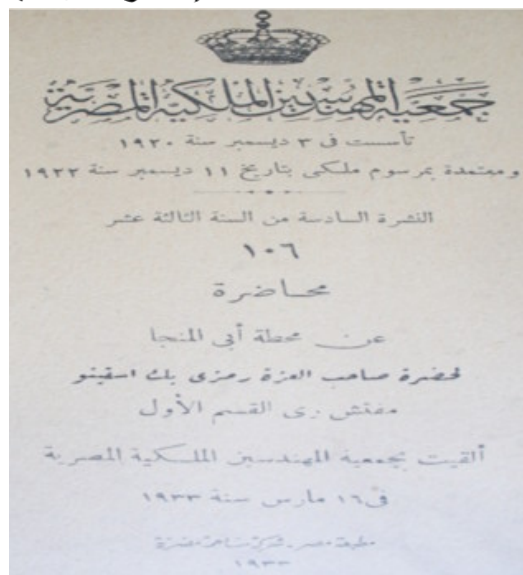 جمعية المهندسين الملكية المصرية
تأسست فى ٣ ديسمبر سنة ١٩٢٠
ومعتمدة بمرسوم ملكى بتاريخ ١١ ديسمبر سنة ١٩٢٢
النشرة السادسة من السنة الثالثة عشر
١٠٦
محاضرة
عن محطة أبى المنجا
لحضرة صاحب العزة رمزى بك اسفينو
مفتش رى القسم الأول
ألقيت بجمعية المهندسين الملكية المصرية
فى ١٦ مارس سنة ١٩٣٣
مطبعة مصر. شركة مساهمة مصرية
١٩٣٣